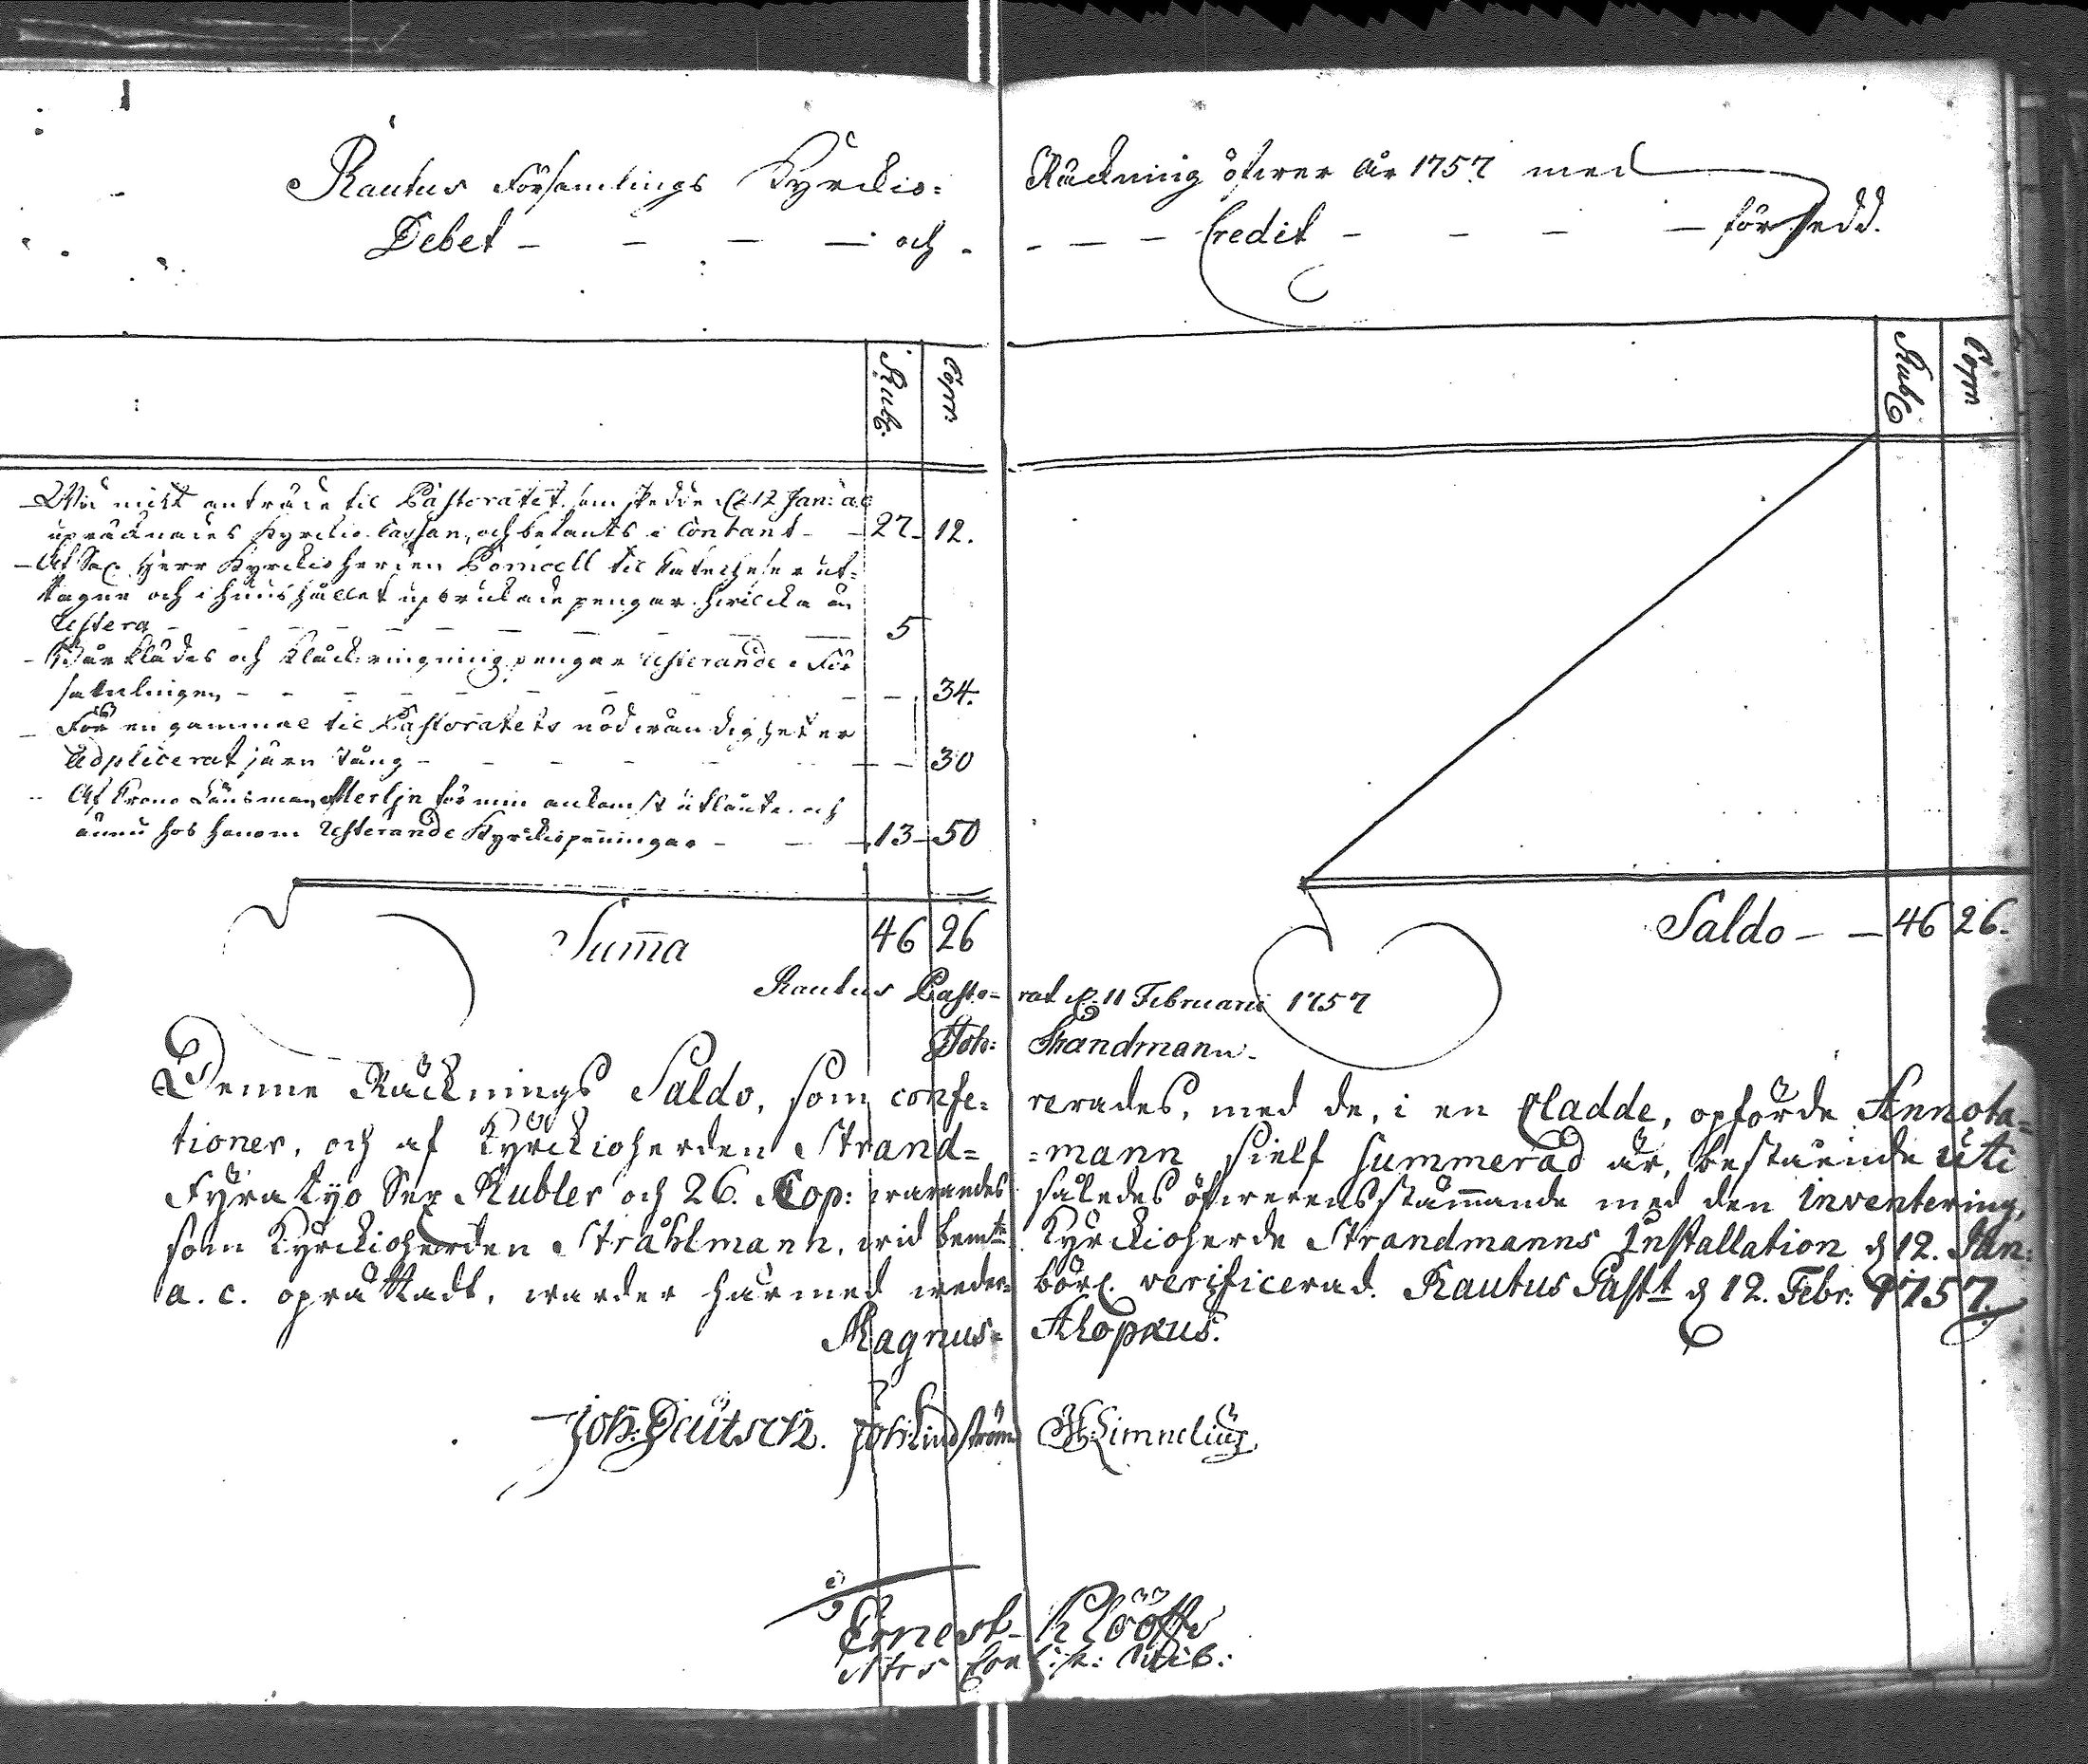 Rautus Församlings Kyrckio=
Räckning öfwer år 1757 med
Debet - - - - och - - - - Credit - - - - försedd.
Rub: Copn:
Rubl Copn
Wid mitt anträde til Pastoratet, som skedde d. 12 Jan: a.c.
upräcknades Kyrckio Cassan, och befants i Contant - - 27. 12.
- Af Sal. Herr Kyrckioherden Pomoell til Catecheser ut=
tagne och i huushållet upbrukade pengar hwilcka än
restera - - - - - - - 5
- Bårklädes och Kläckringnings pengar resterande i För
samlingen - - - - - - - 34.
- För en gammal til Pastoratets nödwändigheter
adplicerat järn stång - - - - - 30
- Af Crono Länsman Merlin för min ankomst utlånte och
ännu hos honom resterande Kyrckiopenningar - - 13 - 50
Suma 46 26
Saldo - - 46 26.
Rautus Pasto= rat d. 11 Februarii 1757
Joh: Strandmann.
Denne Räcknings Saldo, som confe= rerades, med de, i en Cladde, opförde Annota=
tioner, och af Kyrckioherden Strand= =mann sielf summerad är, bestående uti
Fyratijo Sex Rubler och 26. Cop: warandes således öfwerensstämande med den inventering,
som Kyrckioherden Stråhlmann, wid bemte Kyrckioherde Strandmanns Installation d 12. Jan:
a. c. oprättadt, warder härmed weder= börl. verificerad. Rautus Past d 12. Febr: 1757.
Magnus= Alopæus.
Joh: Deutsch. Joh Lindström
Ernest Klööff